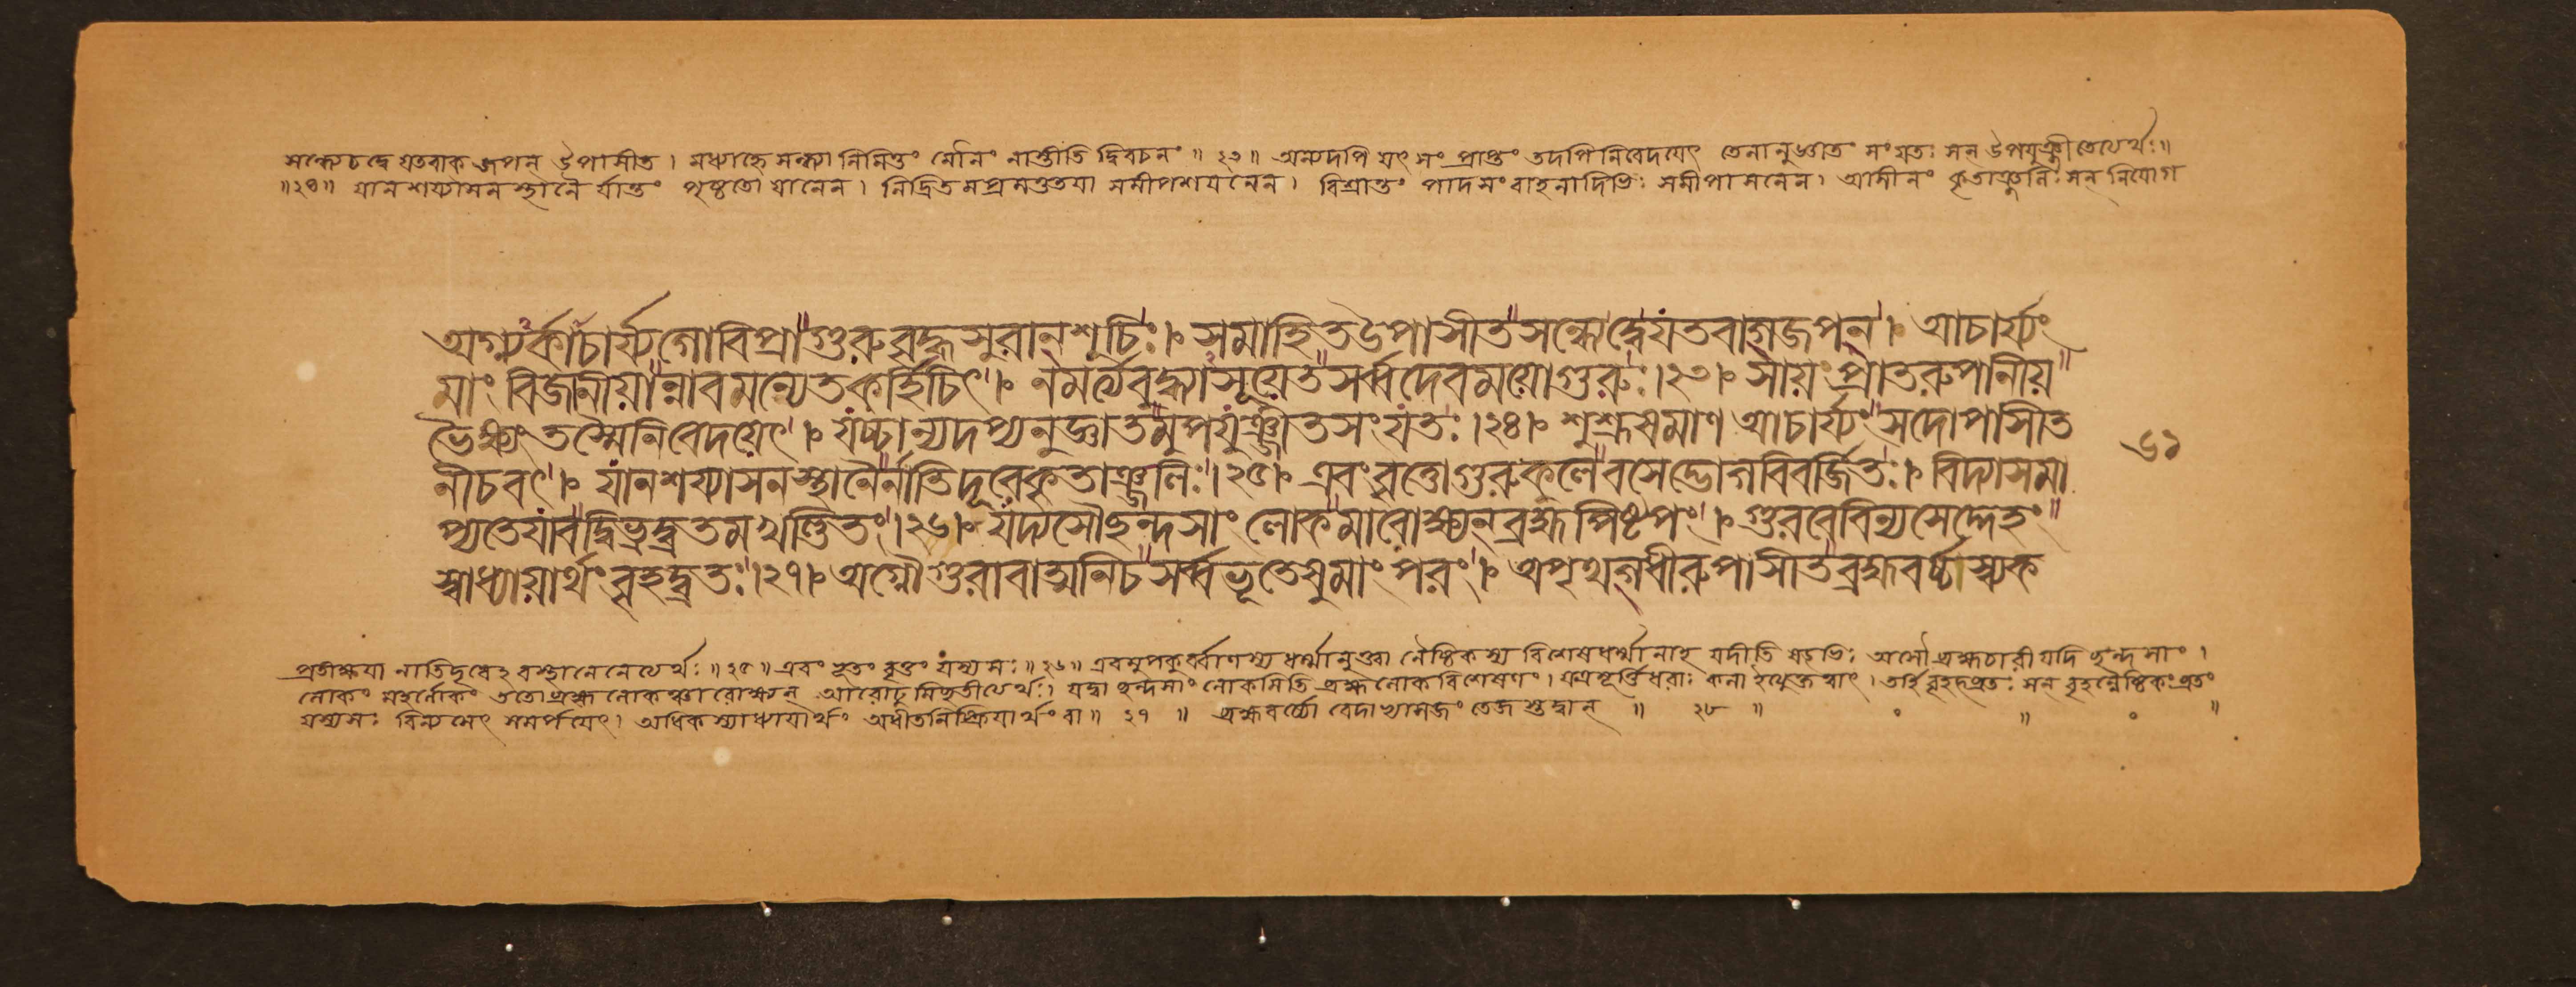 সন্ধ্যেচদ্বে যতবাক জপন্ উপাসীত। মধ্যাহ্নে সন্ধ্যা নিমিত্তং মৌনং নাস্তীতি দ্বিবচনং॥ ২৩॥ অন্যদপি যৎ সংপ্রাপ্তং তদপি নিবেদয়েৎ তেনানুজ্ঞাতং সংযতঃ সন্ উপযুঞ্জীতেত্যর্থঃ॥
॥২৪॥ যানশয্যাসনস্থানৈ র্যান্তং পৃষ্ঠতো যানেন। নিদ্রিতমপ্রমত্ততয়া সমীপশয়নেন। বিশ্রান্তং পাদসংবাহনাদিভিঃ সমীপাসনেন। আসীনং কৃতাঞ্জলিঃ সন্ নিয়োগ
অগ্ন্যর্কাচার্য্যগোবিপ্রগুরুবৃদ্ধসুরান্শুচিঃ। সমাহিতউপাসীতসন্ধ্যেদ্বেযতবাগ্জপন্। আচার্য্যং
মাং বিজানীয়ান্নাবমন্যেতকর্হিচিৎ। নমর্ত্ত্যবুদ্ধ্যাসূয়েতসর্ব্বদেবময়োগুরুঃ।২৩। সায়ং প্রাতরুপানীয়
ভৈক্ষ্যং তস্মৈনিবেদয়েৎ। যচ্চান্যদপ্যনুজ্ঞাতমুপযুঞ্জীতসংযতঃ।২৪। শুশ্রূষমাণ আচার্য্যং সদোপাসীত
নীচবৎ। যানশয্যাসনস্থানৈর্নাতিদূরেকৃতাঞ্জলিঃ।২৫। এবং বৃত্তোগুরুকুলেবসেদ্ভোগবিবর্জিতঃ। বিদ্যাসমা
প্যতেযাবদ্বিভ্রদ্ব্রতমখণ্ডিতং।২৬। যদ্যসৌছন্দসাং লোকমারোক্ষ্যন্ব্রহ্মপিষ্টপং। গুরবেবিন্যসেদ্দেহং
স্বাধ্যায়ার্থং বৃহদ্ব্রতঃ।২৭। অগ্নৌগুরাবাত্মনিচসর্ব্বভূতেষুমাং পরং। অপৃথগ্ধীরুপাসীতব্রহ্মবর্চ্চস্ব্যক
৬১
প্রতীক্ষয়া নাতিদূরেহবস্থানেনেত্যর্থঃ॥২৫॥ এবং ভূতং বৃত্তং যস্য সঃ॥২৬॥ এবমুপকুর্ব্বাণস্য ধর্ম্মানুক্ত্বা নৈষ্ঠিকস্য বিশেষধর্ম্মানাহ যদীতি ষড়্ভিঃ অসৌ ব্রহ্মচারী যদি ছন্দসাং।
লোকং মহর্লোকং ততো ব্রহ্ম লোকঞ্চারোক্ষ্যন্ আরোঢুমিচ্ছতীত্যর্থঃ। যদ্বা ছন্দসাং লোকমিতি ব্রহ্মলোকবিশেষণং। যত্রমূর্ত্তিধরাঃ কলা ইত্যুক্তত্বাৎ। তর্হি বৃহদ্ব্রতঃ সন্ বৃহন্নৈষ্ঠিকংব্রতং
যস্যসঃ বিন্যসেৎ সমর্পয়েৎ। অধিকস্বাধ্যায়ার্থং অধীতনিষ্ক্রিয়ার্থং বা॥ ২৭॥ ব্রহ্মবর্চ্চো বেদাভ্যাসজং তেজ স্তদ্বান্॥ ২৮॥